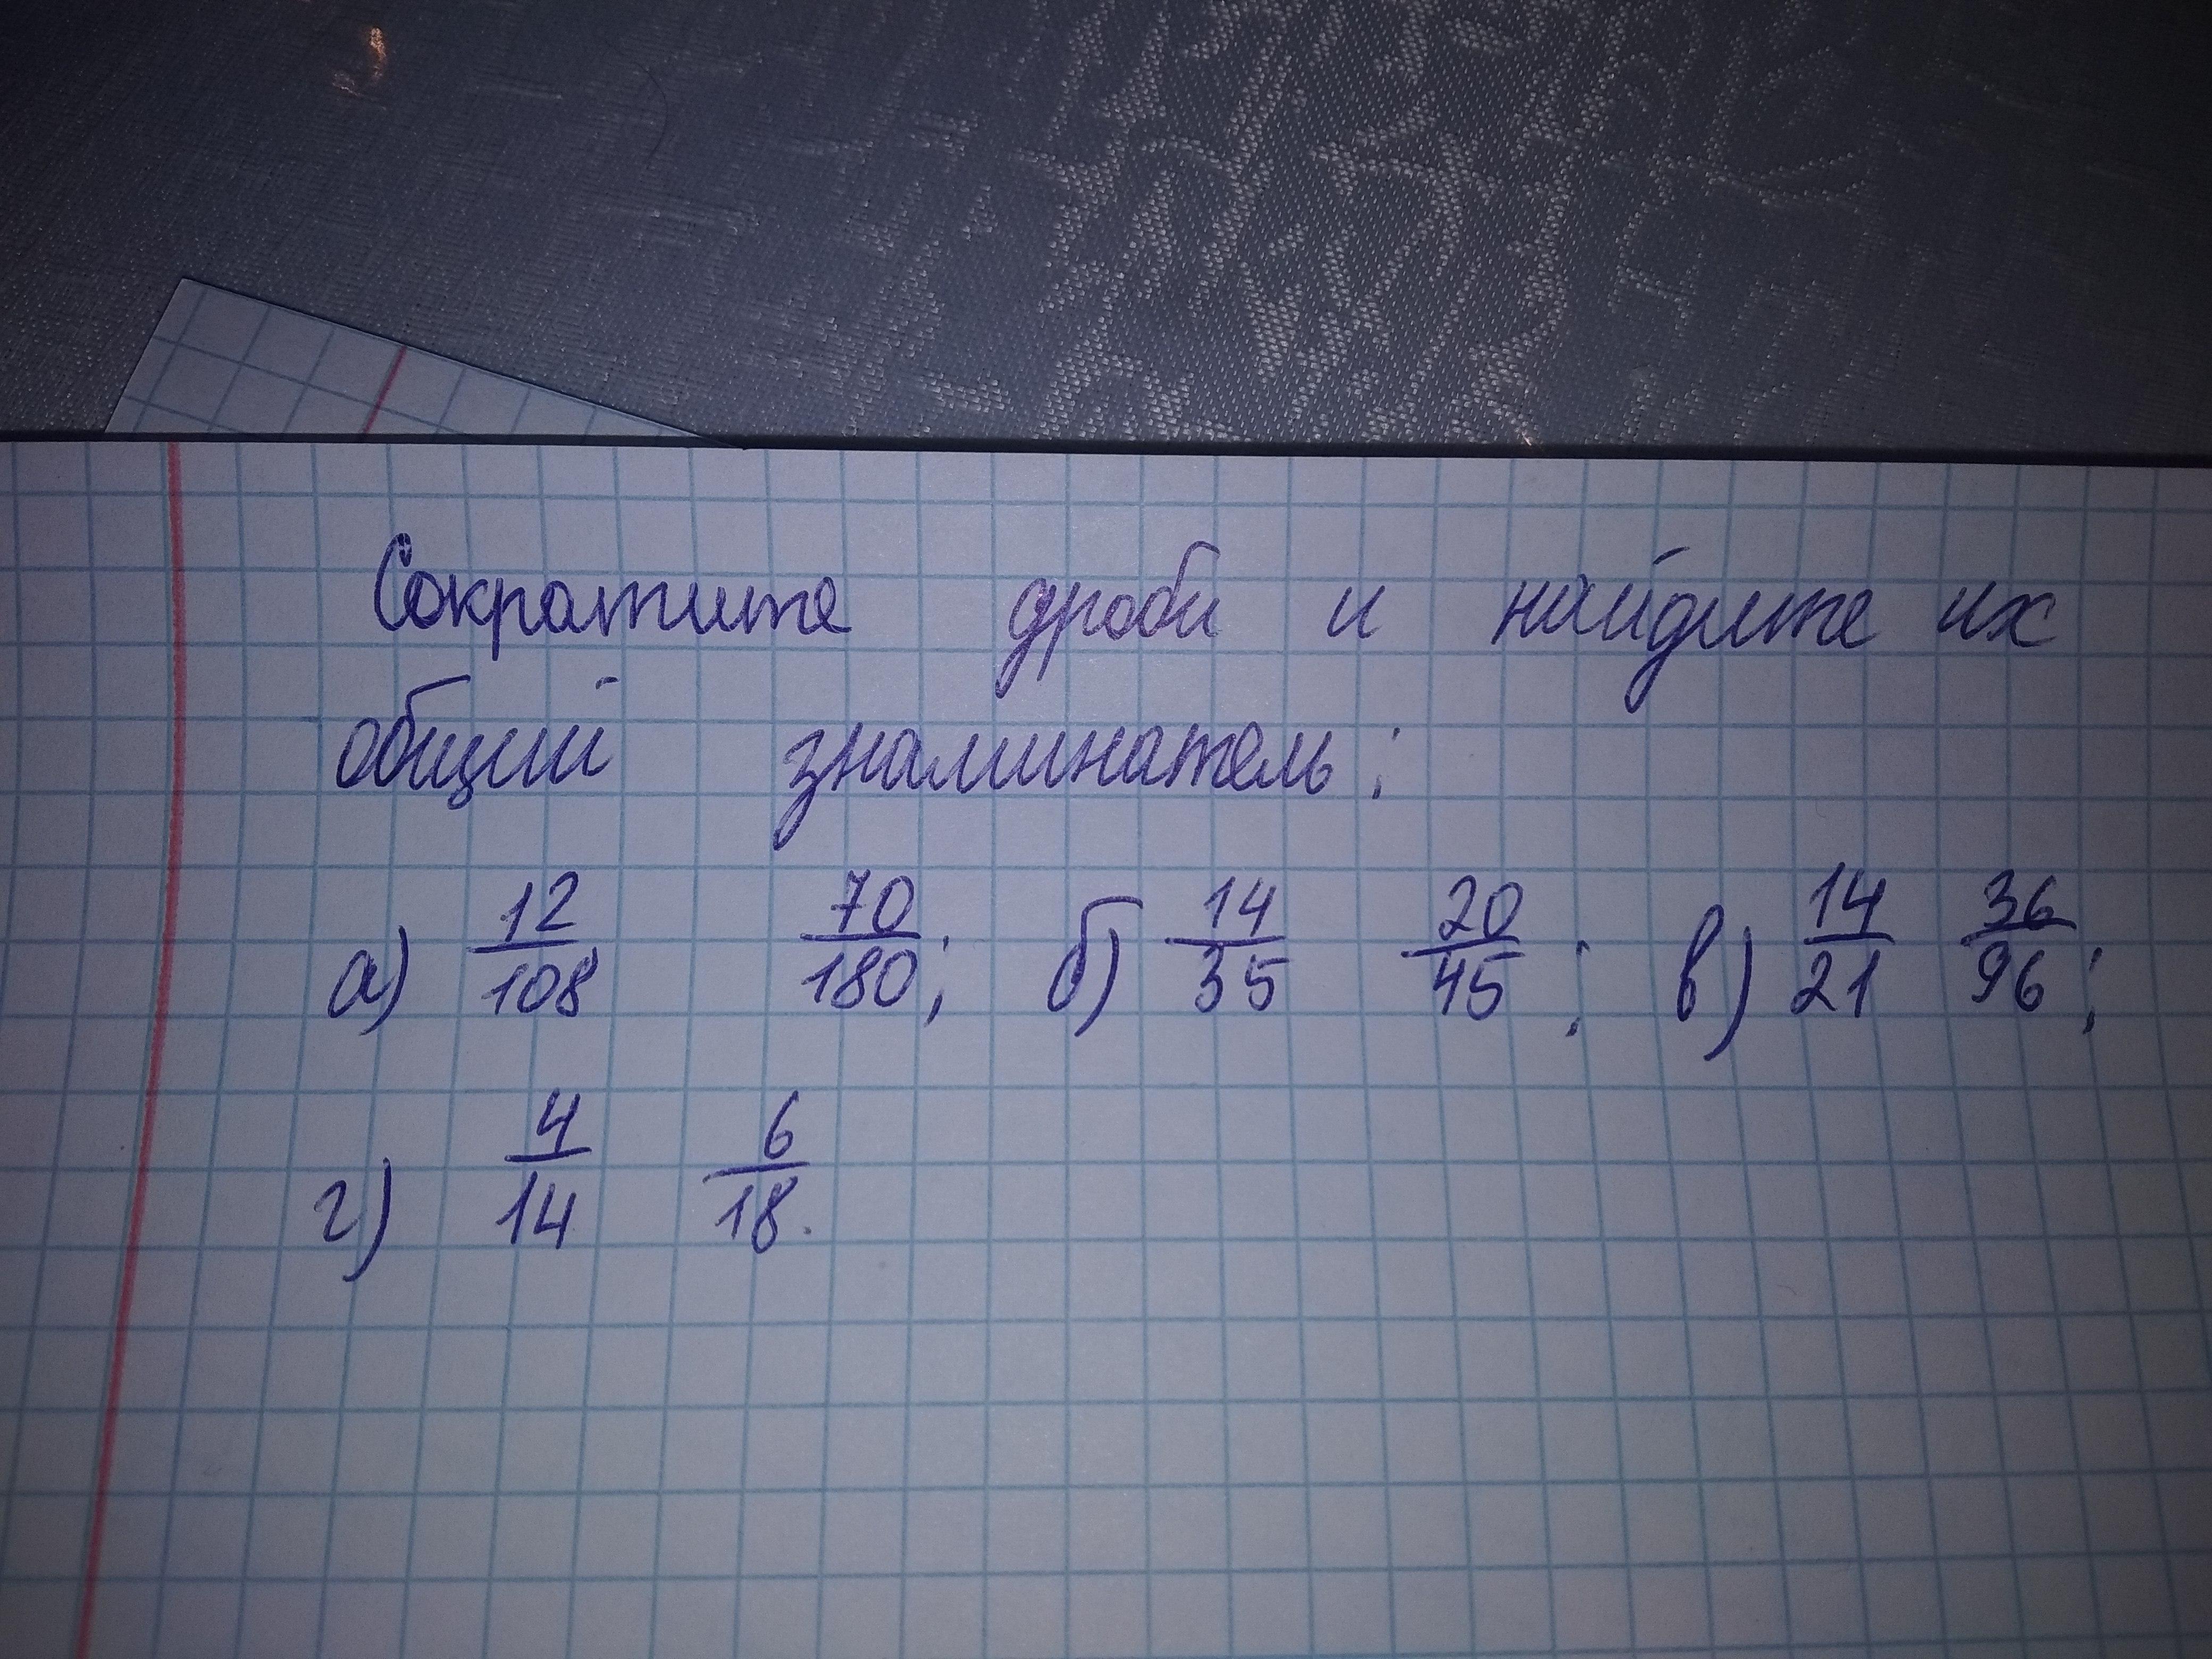 Сократите дроби и найдите их
общий знаминатель:
а) 12/108 70/180; б) 14/35 20/45; в) 14/21 36/96;
г) 4/14 6/18.